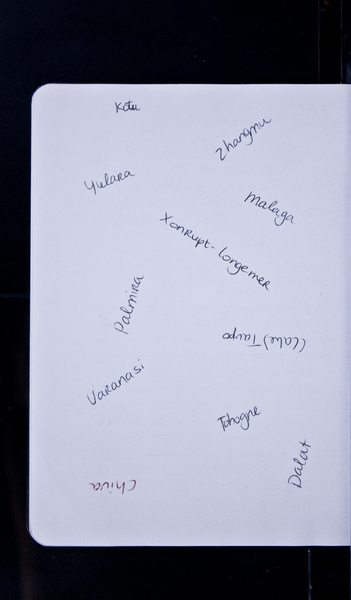 Kotu
Zhangmu
Yulara
Malaga
Xonrupt-Longemer
Palmira
(Lake) Taupo
Varanasi
Tohogne
Dalat
Chiva